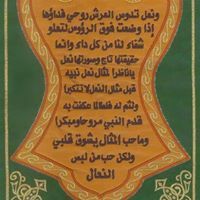 ونعل تدوس العرش روحي فداؤها
إذا وضعت فوق الرؤوس لتعلو
شفاء لنا من كل داء وإنها
حقيقتها تاج وصورتها نعل
ياناظرا تمثال نعل نبيه
قبل مثال النعل لا تتكبرا
والثم له فلطالما عكفت به
قدم النبي مروحا ومبكرا
وما حب المثال يشوق قلبي
ولكن حب من لبس
النعال